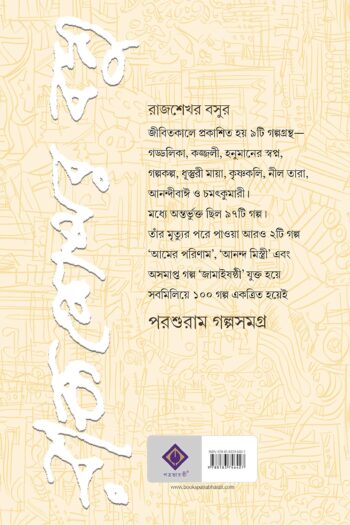 রাজশেখর বসু
রাজশেখর বসুর
জীবিতকালে প্রকাশিত হয় ৯টি গল্পগ্রন্থ—
গড্ডলিকা, কজ্জলী, হনুমানের স্বপ্ন,
গল্পকল্প, ধুস্তুরী মায়া, কৃষ্ণকলি, নীল তারা,
আনন্দীবাঈ ও চমৎকুমারী।
মধ্যে অন্তর্ভুক্ত ছিল ৯৭টি গল্প।
তাঁর মৃত্যুর পরে পাওয়া আরও ২টি গল্প
‘আমের পরিণাম’, ‘আনন্দ মিস্ত্রী’ এবং
অসমাপ্ত গল্প ‘জামাইষষ্ঠী’ যুক্ত হয়ে
সবমিলিয়ে ১০০ গল্প একত্রিত হয়েই
পরশুরাম গল্পসমগ্র
পত্রভারতী
www.bookspatrabharati.com